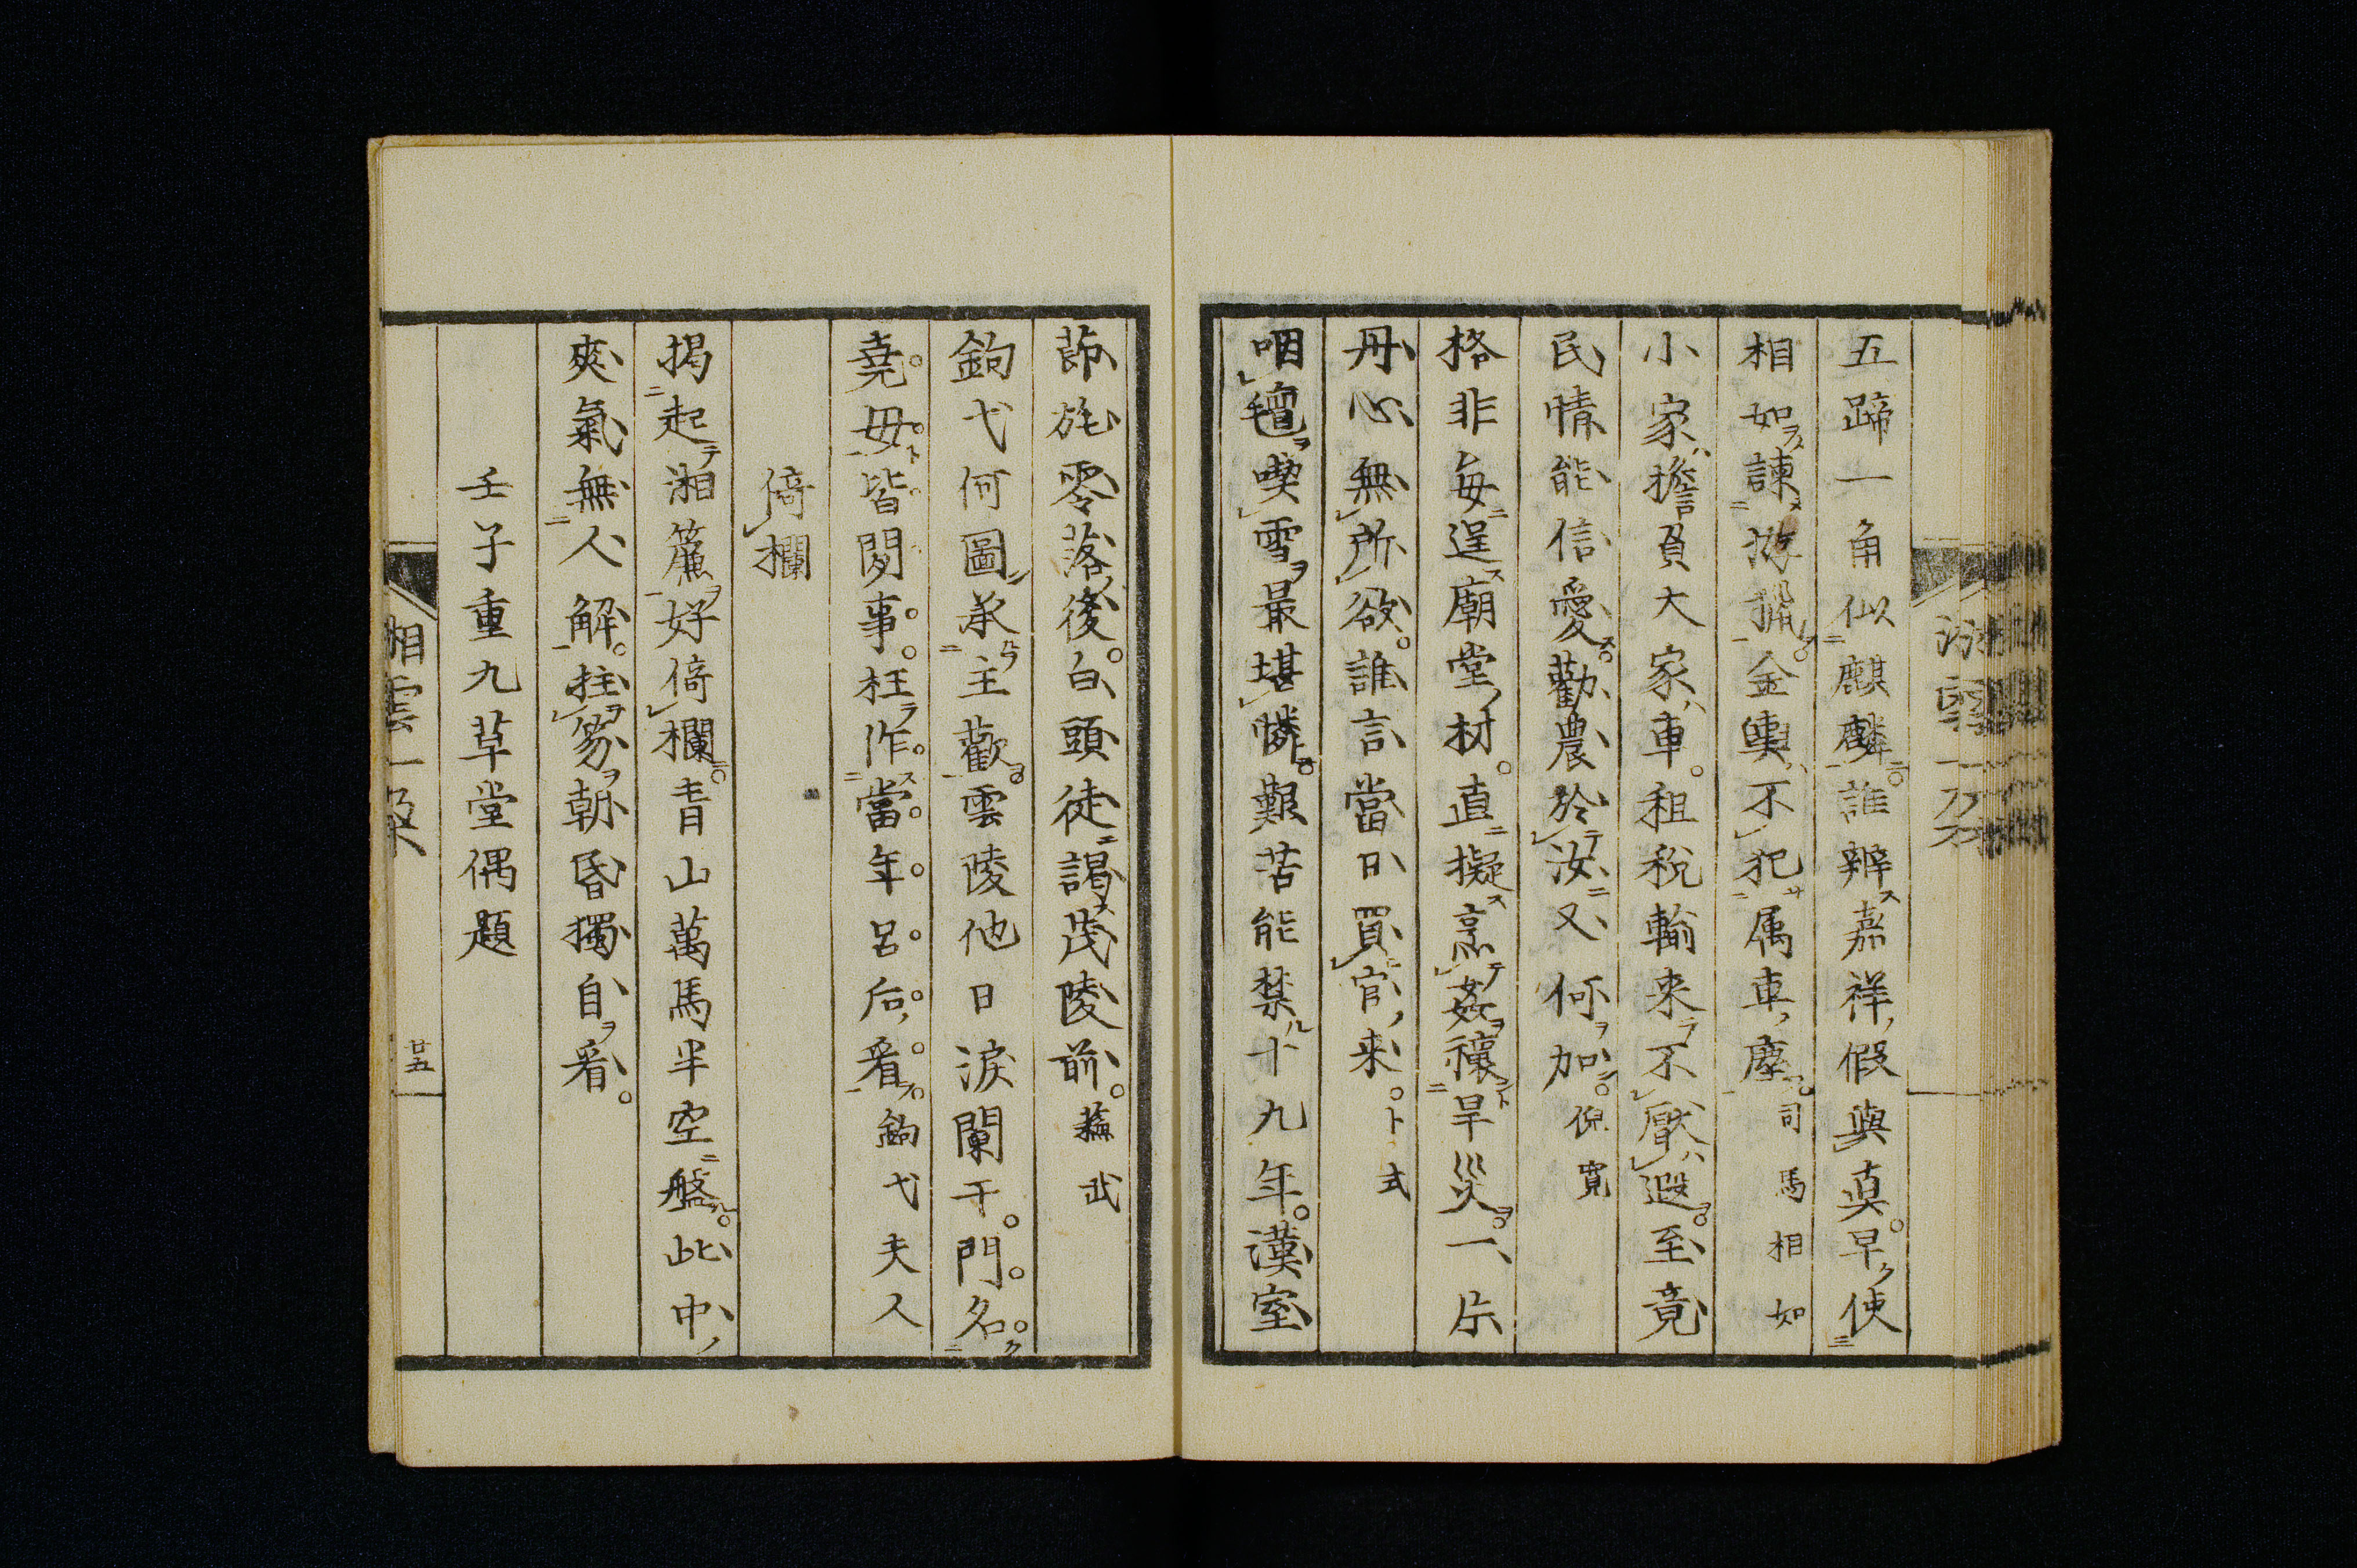 五蹄一角似麒麟誰辨嘉祥假與真早使
相如諫游獵金輿不犯属車塵 司馬相如
小家擔負大家車租税輸来不厭遐至竟
民情能信愛勸農於汝又何加 倪寛
格非毎逞廟堂材直擬烹姦禳旱災一片
丹心無所欲誰言當日買官来 卜式
咽氊喫雪最堪憐艱苦能禁十九年漢室
節旄零落後白頭徒謁茂陵前 蘇武
鉤弋何圖承主歡雲陵他日涙闌干門名
堯母皆閑事枉作當年呂后看 鉤弋夫人
倚欄
揭起湘簾好倚欄青山萬馬半空盤此中
爽氣無人解拄笏朝昏獨自看
壬子重九草堂偶題
廿五